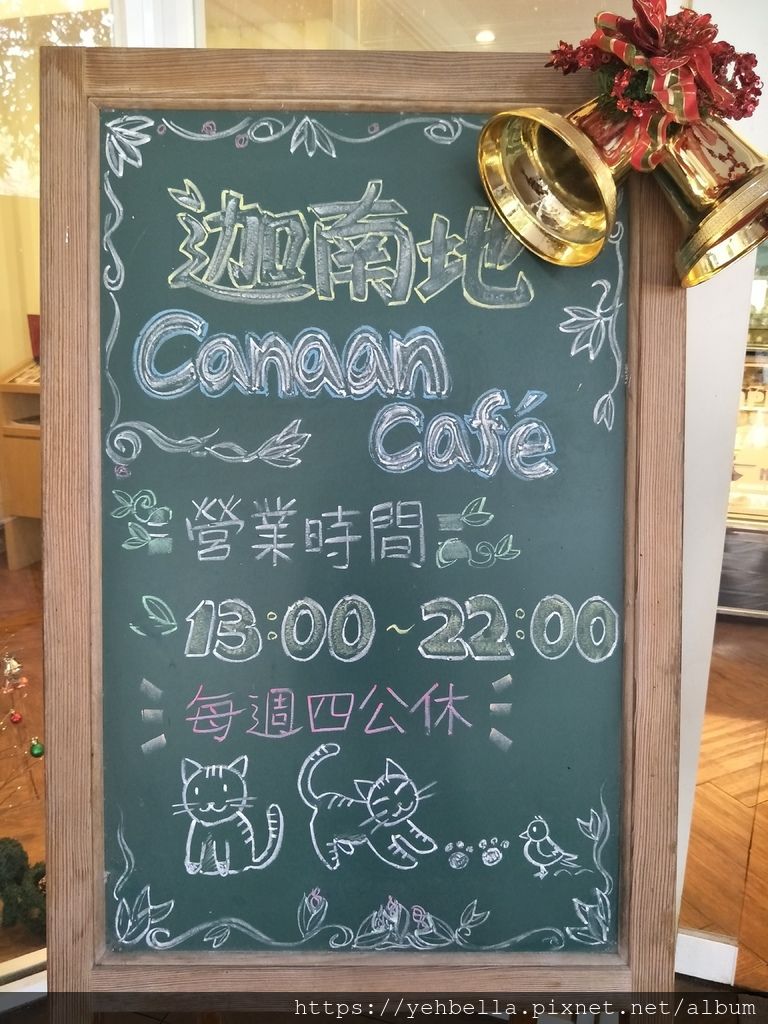 迦南地
Canaan
Café
營業時間
13:00~22:00
每週四公休
https://yehbella.pixnet.net/album